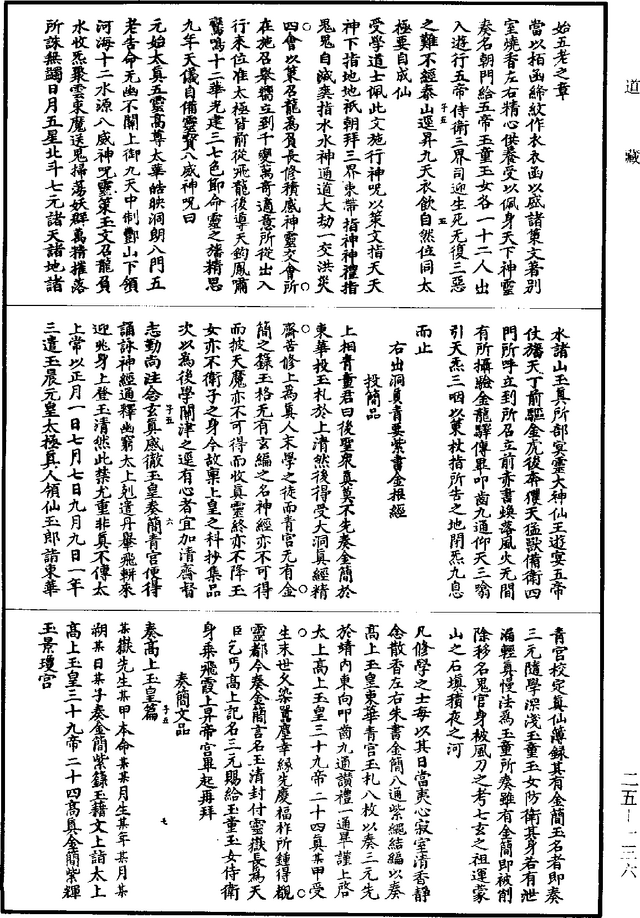 道藏
始五老之章
當以栢函締紋作衣衣函以盛諸策文著別
室燒香左右精心供養受以佩身天下神靈
奏名朝門給五帝玉童玉女各一十二人出
入遊行五帝侍衛三界司迎生死无復三惡
之難不經泰山逕昇九天衣飲自然位同太
極要自成仙
受學道士佩此文施行神呪以策文指天天
神下指地地祇朝拜三界束帶指神神禮指
鬼鬼自滅奕指水水神通道大劫一交洪災
四會以策召龍萬負長修積感神靈交會所
在施召舉嚮立到千變萬奇適意所從出入
行來位准太極皆前從飛龍後導天鈞鳳嘯
鸞鳴十二華光建三七色節命靈之旛精思
九年天儀自備靈寶八威神呪曰
元始太真五靈高尊太華皓映洞朗八門五
老告命无幽不關上御九天中制酆山下領
河海十二水源八威神呪靈策玉文召龍負
水收炁聚雲束魔送鬼掃蕩妖群萬精摧落
所誅無蠲日月五星北斗七元諸天諸地諸
子五
五
水諸山玉真所部冥靈大神仙王遊宴五帝
仗旛天丁前驅金虎後奔玃天猛獸備衛四
門所呼立到所召立前赤書煥落風火无間
有所攝驗金龍驛傳畢叩齒九通仰天三噏
引天炁三咽以策杖指所告之地閉炁九息
而止
右出洞真青要紫書金根經
投簡品
上相青童君曰後聖衆真莫不先奏金簡於
東華投玉札於上清然後得受大洞真經精
齋苦修上為真人末學之徒而青宮无有金
簡之籙玉格无有玄編之名神經亦不可得
而披天魔亦不可得而收真靈終亦不降玉
女亦不衛子之身今故稟上皇之科抄集品
次以為後學開津之逕有心者宜加清齋督
志勤尚注念玄真感徹玉皇奏簡青宮便得
誦詠神經通釋幽窮太上剋遣丹舉飛軿來
迎兆身上登玉清然此禁尤重非真不傳太
上常以正月一日七月七日九月九日一年
三遣玉晨元皇太極真人領仙玉郎詣東華
子五
六
青宮校定真仙薄録其有金簡玉名者即奏
三元隨學深淺玉童玉女防衛其身若有泄
漏輕真慢法為玉童所奏雖有金簡即被削
除移名鬼官身被風刀之考七玄之祖運蒙
山之石填積夜之河
凡修學之士每以其日當夷心寂室清香靜
念散香左右朱書金簡八通紫繩結編以奏
高上玉皇東華青宮玉札八枚以奏三元先
於靖內東向叩齒九通讃禮一通畢謹上啓
太上高上玉皇三十九帝二十四真某甲受
生末世久染嚚塵幸緣先慶福祚所鍾得覩
靈都今奏金簡言名玉清封付靈嶽長為天
臣乞丐高上記名三元賜給玉童玉女侍衛
身乘飛霞上昇帝宮畢起再拜
奏簡文品
奏高上玉皇篇
某嶽先生某甲本命某某月生某年某月某
朔某日某子奏金簡紫籙玉藉文上詣太上
高上玉皇三十九帝二十四高真金簡紫輝
玉景瓊宮
子五
七
二五—二三六